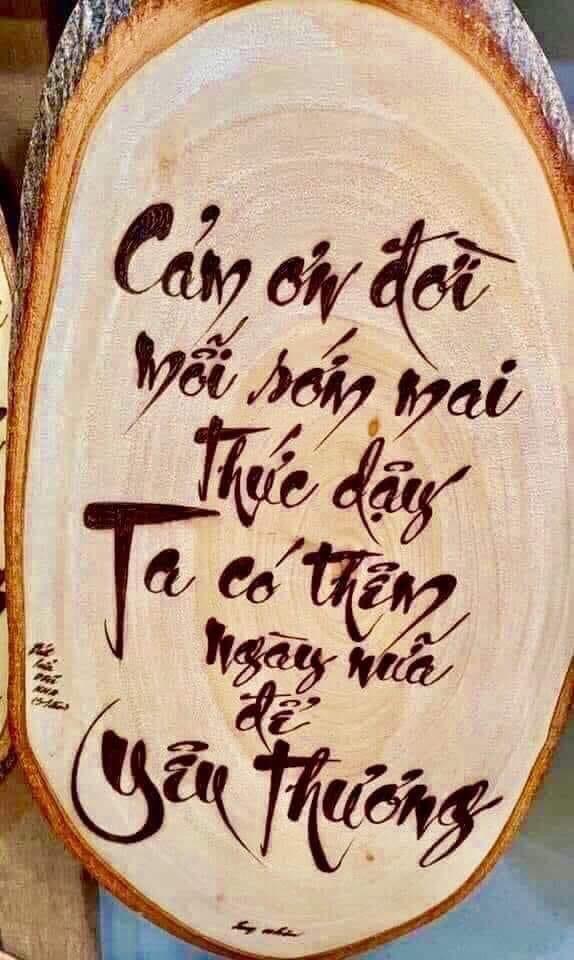 Cảm ơn đời
mỗi sớm mai
thức dậy
Ta có thêm
ngày nữa
để
yêu thương